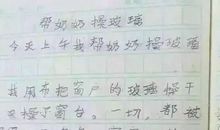 帮奶奶擦玻璃
今天上午我帮奶奶擦玻璃
我用布把窗户的玻璃擦干
又擦了窗台。一切,都被